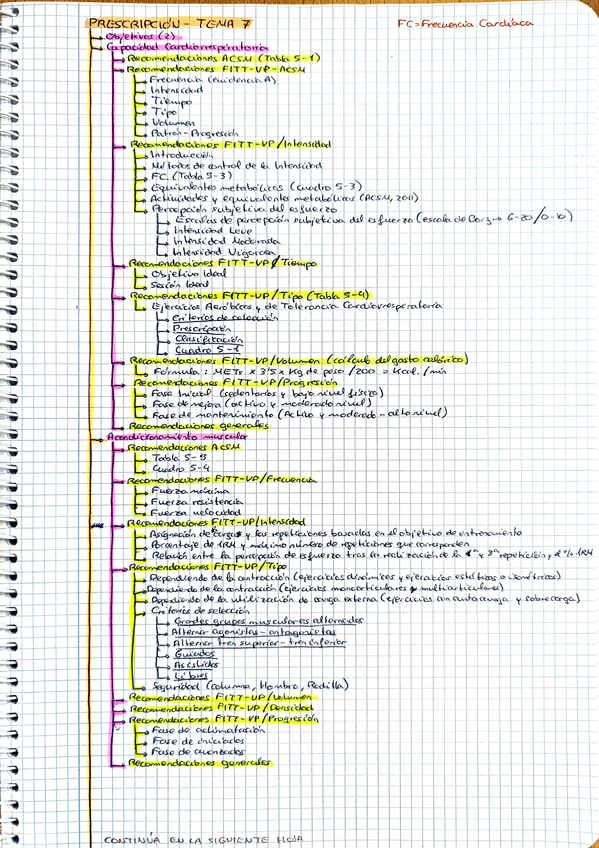 PRESCRIPCIÓN - TEMA 7
FC = Frecuencia Cardíaca
Objetivos (2)
Capacidad Cardiorrespiratoria
Recomendaciones ACSM (Tabla 5-1)
Recomendaciones FITT-VP-ACSM
Frecuencia (evidencia A)
Intensidad
Tiempo
Tipo
Volumen
Patrón - Progresión
Recomendaciones FITT-VP/Intensidad
Introducción
Métodos de control de la Intensidad
FC. (Tabla 5-3)
Equivalentes metabólicos (cuadro 5-3)
Actividades y equivalentes metabólicos (ACSM, 2011)
Percepción subjetiva del esfuerzo
Escalas de percepción subjetiva del esfuerzo (escala de Borg → 6-20/0-10)
Intensidad Leve
Intensidad Moderada
Intensidad Vigorosa
Recomendaciones FITT-VP/Tiempo
Objetivo Ideal
Sesión Ideal
Recomendaciones FITT-VP/Tipo (Tabla 5-4)
Ejercicios Aeróbicos y de Tolerancia Cardiorrespiratoria
Criterios de selección
Prescripción
Clasificación
Cuadro 5-1
Recomendaciones FITT-VP/Volumen (cálculo del gasto calórico)
Fórmula: METs x 3'5 x Kg de peso /200 = Kcal./min
Recomendaciones FITT-VP/Progresión
Fase Inicial (sedentarios y bajo nivel físico)
Fase de mejora (activo y moderado nivel)
Fase de mantenimiento (Activo y moderado - alto nivel)
Recomendaciones generales
Acondicionamiento muscular
Recomendaciones ACSM
Tabla 5-5
Cuadro 5-4
Recomendaciones FITT-VP/Frecuencia
Fuerza máxima
Fuerza resistencia
Fuerza velocidad
Recomendaciones FITT-VP/Intensidad
Asignación de cargas y las repeticiones basadas en el objetivo de entrenamiento
Porcentaje de 1RM y máximo número de repeticiones que corresponden
Relación entre la percepción de esfuerzo tras la realización de la 1ª y 3ª repetición y el % 1RM
Recomendaciones FITT-VP/Tipo
Dependiendo de la contracción (ejercicios dinámicos y ejercicios estáticos o isométricos)
Dependiendo de la contracción (ejercicios monoarticulares y multiarticulares)
Dependiendo de la utilización de carga externa (ejercicios con autocarga y sobrecarga)
Criterios de selección
Grandes grupos musculares alternados
Alternar agonistas-antagonistas
Alternar tren superior-tren inferior
Guiados
Asistidos
Libres
Seguridad (Columna, Hombro, Rodilla)
Recomendaciones FITT-VP/Volumen
Recomendaciones FITT-VP/Densidad
Recomendaciones FITT-VP/Progresión
Fase de aclimatación
Fase de iniciados
Fase de avanzados
Recomendaciones generales
CONTINÚA EN LA SIGUIENTE HOJA